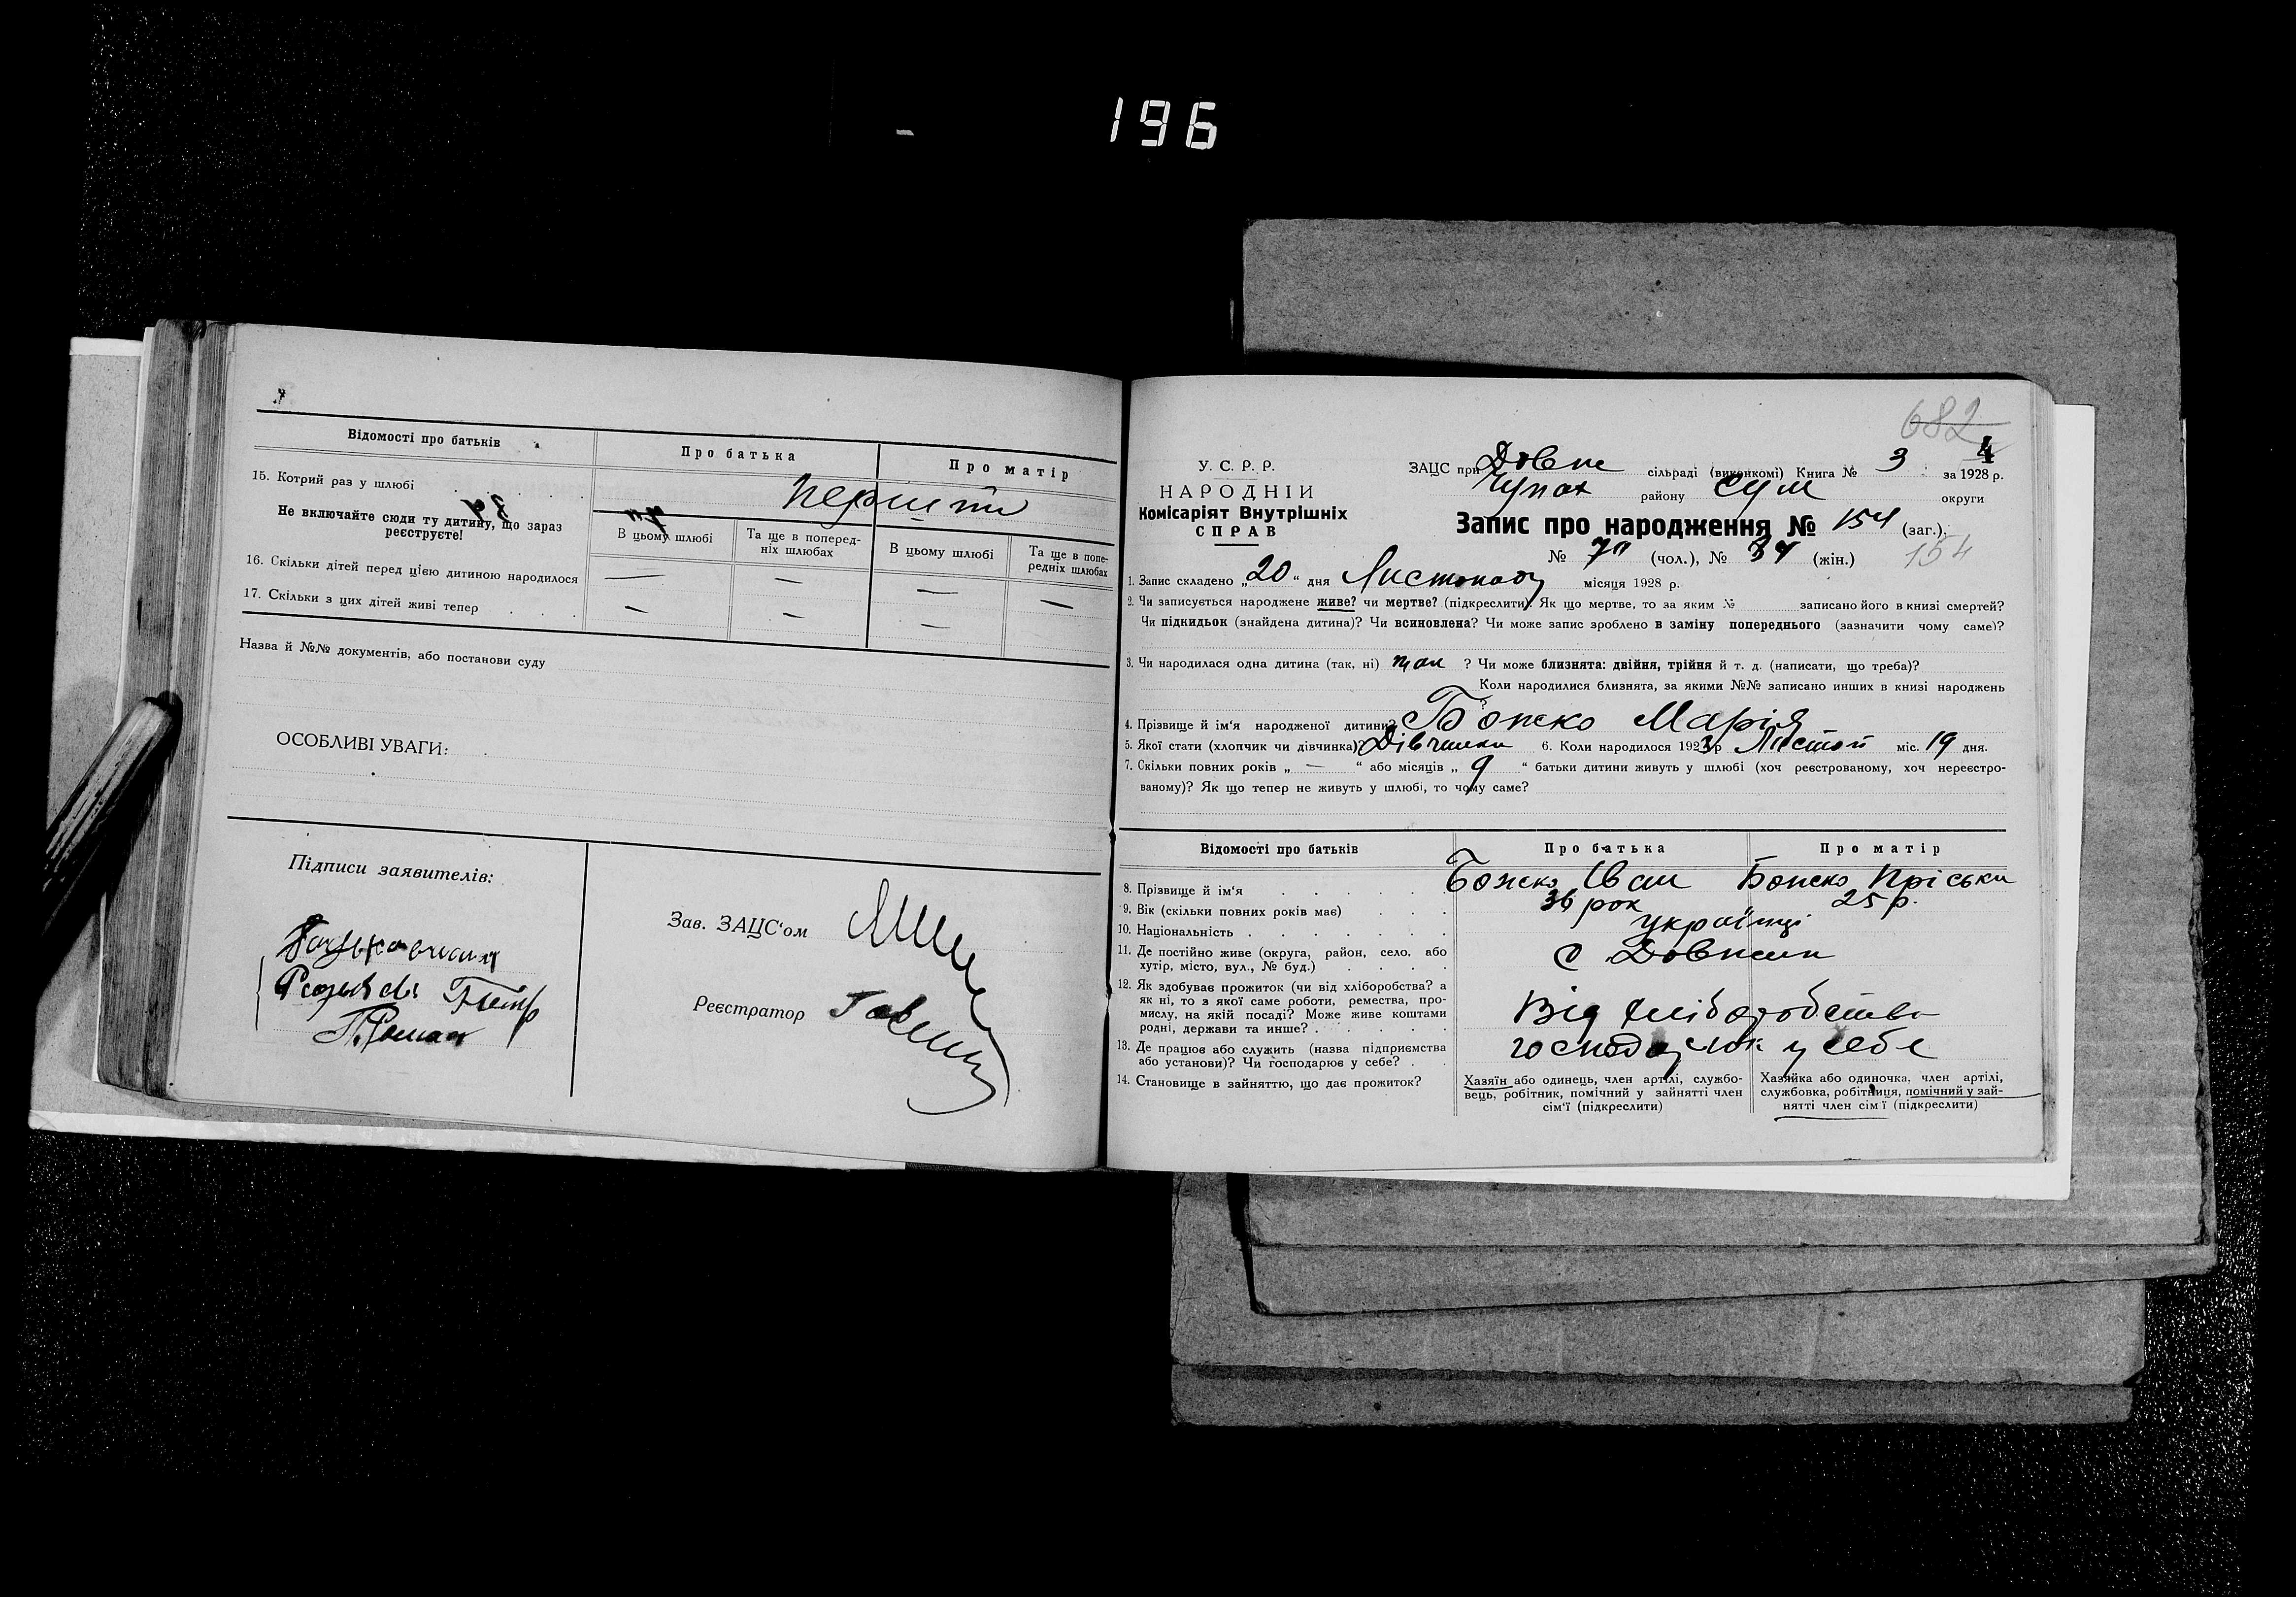 196
Відомості про батьків
Про батька
Про матір
15. Котрий раз у шлюбі
Не включайте сюди ту дитину, що зараз
реєструєте!
В цьому шлюбі
Та ще в поперед-
ніх шлюбах
В цьому шлюбі
Та ще в попе-
редніх шлюбах
16. Скільки дітей перед цією дитиною народилося — — — —
17. Скільки з цих дітей живі тепер — — —
Назва й №№ документів, або постанови суду
ОСОБЛИВІ УВАГИ:
Підписи заявителів:
Зав. ЗАЦС'ом
Реєстратор
682
4
У. С. Р. Р.
НАРОДНІЙ
Комісаріят Внутрішніх
СПРАВ
ЗАЦС при сільраді (виконкомі) Книга № 3 за 1928 р.
району Сум округи
Запис про народження № 154 (заг.),
№ (чол.), № (жін.) 154
1. Запис складено „20“ дня Листопаду місяця 1928 р.
2. Чи записується народжене живе? чи мертве? (підкреслити). Як що мертве, то за яким № записано його в книзі смертей?
Чи підкидьок (знайдена дитина)? Чи всиновлена? Чи може запис зроблено в заміну попереднього (зазначити чому саме)?
3. Чи народилася одна дитина (так, ні) так ? Чи може близнята: двійня, трійня й т. д. (написати, що треба)?
Коли народилися близнята, за якими №№ записано инших в книзі народжень
4. Прізвище й ім'я народженої дитини? Божко Марія
5. Якої стати (хлопчик чи дівчинка)? Дівчинка 6. Коли народилося 1928 р Листоп міс. 19 дня.
7. Скільки повних років „—“ або місяців „9“ батьки дитини живуть у шлюбі (хоч реєстрованому, хоч нереєстро-
ваному)? Як що тепер не живуть у шлюбі, то чому саме?
Відомості про батьків
Про батька
Про матір
8. Прізвище й ім'я Божко Іван Божко Пріська
9. Вік (скільки повних років має) 36 рок 25 р.
10. Національність українці
11. Де постійно живе (округа, район, село, або
хутір, місто, вул., № буд.)
12. Як здобуває прожиток (чи від хліборобства? а
як ні, то з якої саме роботи, ремества, про-
мислу, на якій посаді? Може живе коштами
родні, держави та инше?
Від хліборобства
13. Де працює або служить (назва підприємства
або установи)? Чи господарює у себе?
у себе
14. Становище в зайняттю, що дає прожиток?
Хазяїн або одинець, член артілі, службо-
вець, робітник, помічний у зайнятті член
сім'ї (підкреслити)
Хазяйка або одиночка, член артілі,
службовка, робітниця, помічний у зай-
нятті член сім'ї (підкреслити)